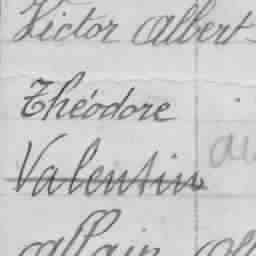 Victor Albert
Théodore
Valentin
allain